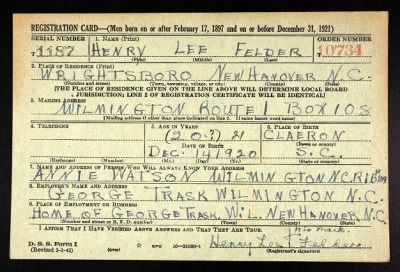 REGISTRATION CARD—(Men born on or after February 17, 1897 and on or before December 31, 1921)
SERIAL NUMBER 1. NAME (Print) ORDER NUMBER
T 1187 HENRY LEE FELDER T 10734
(First) (Middle) (Last)
2. PLACE OF RESIDENCE (Print)
WRIGHTSBORO NEW HANOVER N.C.
(Number and street) (Town, township, village, or city) (County) (State)
[THE PLACE OF RESIDENCE GIVEN ON THE LINE ABOVE WILL DETERMINE LOCAL BOARD
JURISDICTION; LINE 2 OF REGISTRATION CERTIFICATE WILL BE IDENTICAL]
3. MAILING ADDRESS
WILMINGTON ROUTE 1 BOX 108
[Mailing address if other than place indicated on line 2. If same insert word same]
4. TELEPHONE 5. AGE IN YEARS 6. PLACE OF BIRTH
(20-?) 21 CLAERON
DATE OF BIRTH (Town or county)
DEC. 14 1920 S.C.
(Exchange) (Number) (Mo.) (Day) (Yr.) (State or country)
7. NAME AND ADDRESS OF PERSON WHO WILL ALWAYS KNOW YOUR ADDRESS
ANNIE WATSON WILMINGTON N.C. R1
8. EMPLOYER'S NAME AND ADDRESS
GEORGE TRASK WILMINGTON N.C.
9. PLACE OF EMPLOYMENT OR BUSINESS
HOME OF GEORGE TRASK, WIL. NEW HANOVER, N.C.
(Number and street or R. F. D. number) (Town) (County) (State)
I AFFIRM THAT I HAVE VERIFIED ABOVE ANSWERS AND THAT THEY ARE TRUE. His mark.
D. S. S. Form 1
(Revised 1-1-42) GPO Henry Lee
(Registrant's signature)